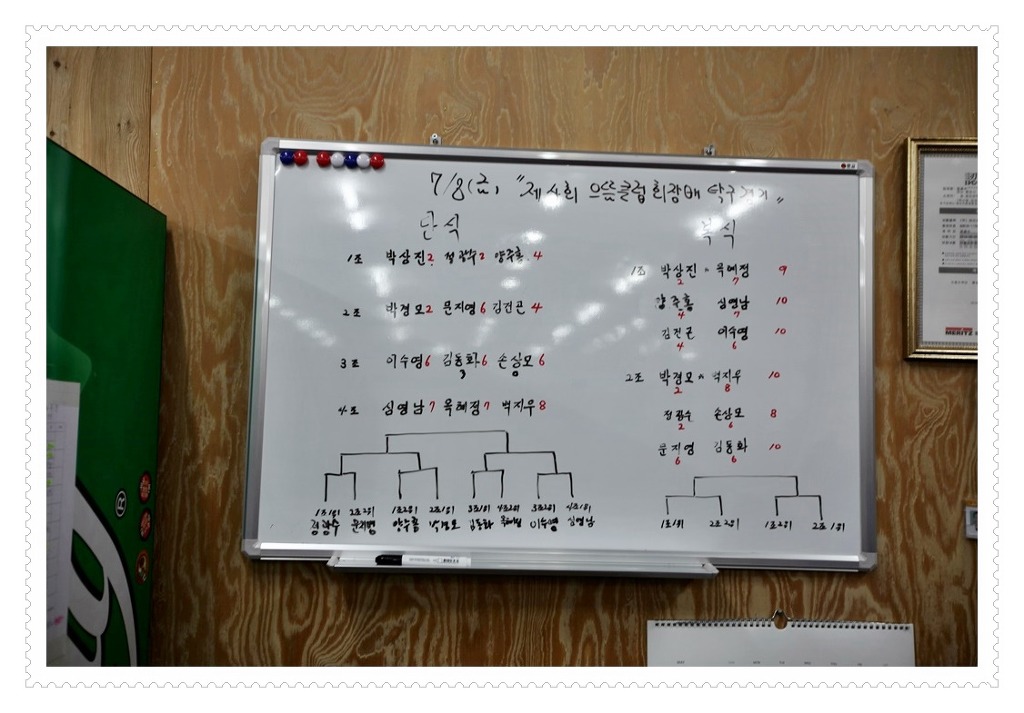 7/8(금) "제4회 으뜸클럽회장배 탁구경기"
단식
1조 박상진2 정광수2 양주홍 4
2조 박경모2 문지영6 김건곤 4
3조 이수영6 김동화6 손상모 6
4조 심영남7 옥혜정7 박지우8
1조1위 2조2위 1조2위 2조1위 3조1위 4조2위 3조2위 4조1위
정광수 문지영 양주홍 박경모 김동화 옥혜정 이수영 심영남
복식
1조 박상진 옥혜정 9
2 7
양주홍 심영남 10
4 7
김건곤 이수영 10
4 6
2조 박경모 박지우 10
2 8
정광수 손상모 8
2 6
문지영 김동화 10
6 6
1조1위 2조2위 1조2위 2조1위
MERITZ